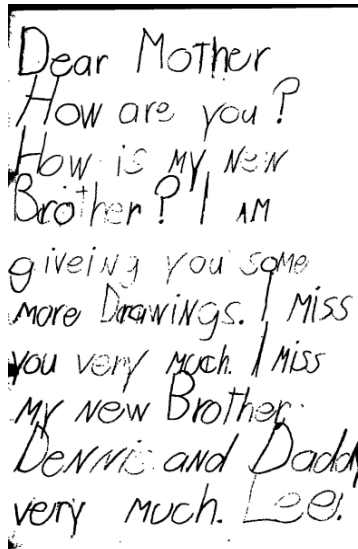 Dear Mother
How are you?
How is my new
Brother? I am
giveing you some
more Drawings. I miss
you very much. I miss
my new Brother.
Dennis and Daddy
very much. Lee.